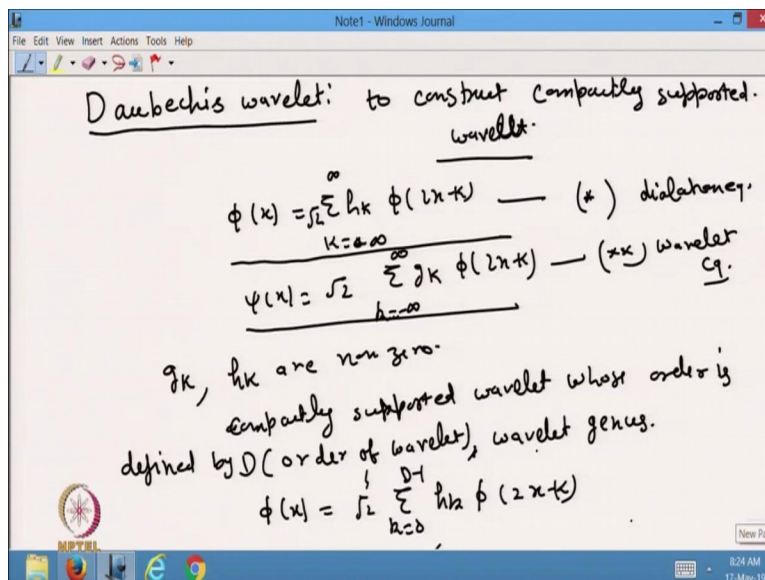 Note1 - Windows Journal
File Edit View Insert Actions Tools Help
Daubechis wavelet: to construct compactly supported.
wavelet.
ϕ(x) = √2 ∑_{k=-∞}^{∞} hk ϕ(2x-k) — (*) dialation eq.
ψ(x) = √2 ∑_{k=-∞}^{∞} gk ϕ(2x-k) — (**) wavelet eq.
gk, hk are non zero.
compactly supported wavelet whose order is
defined by D (order of wavelet), wavelet genus.
ϕ(x) = √2 ∑_{k=0}^{D-1} hk ϕ(2x-k)
NPTEL
New Pa
8:24 AM
17-May-1